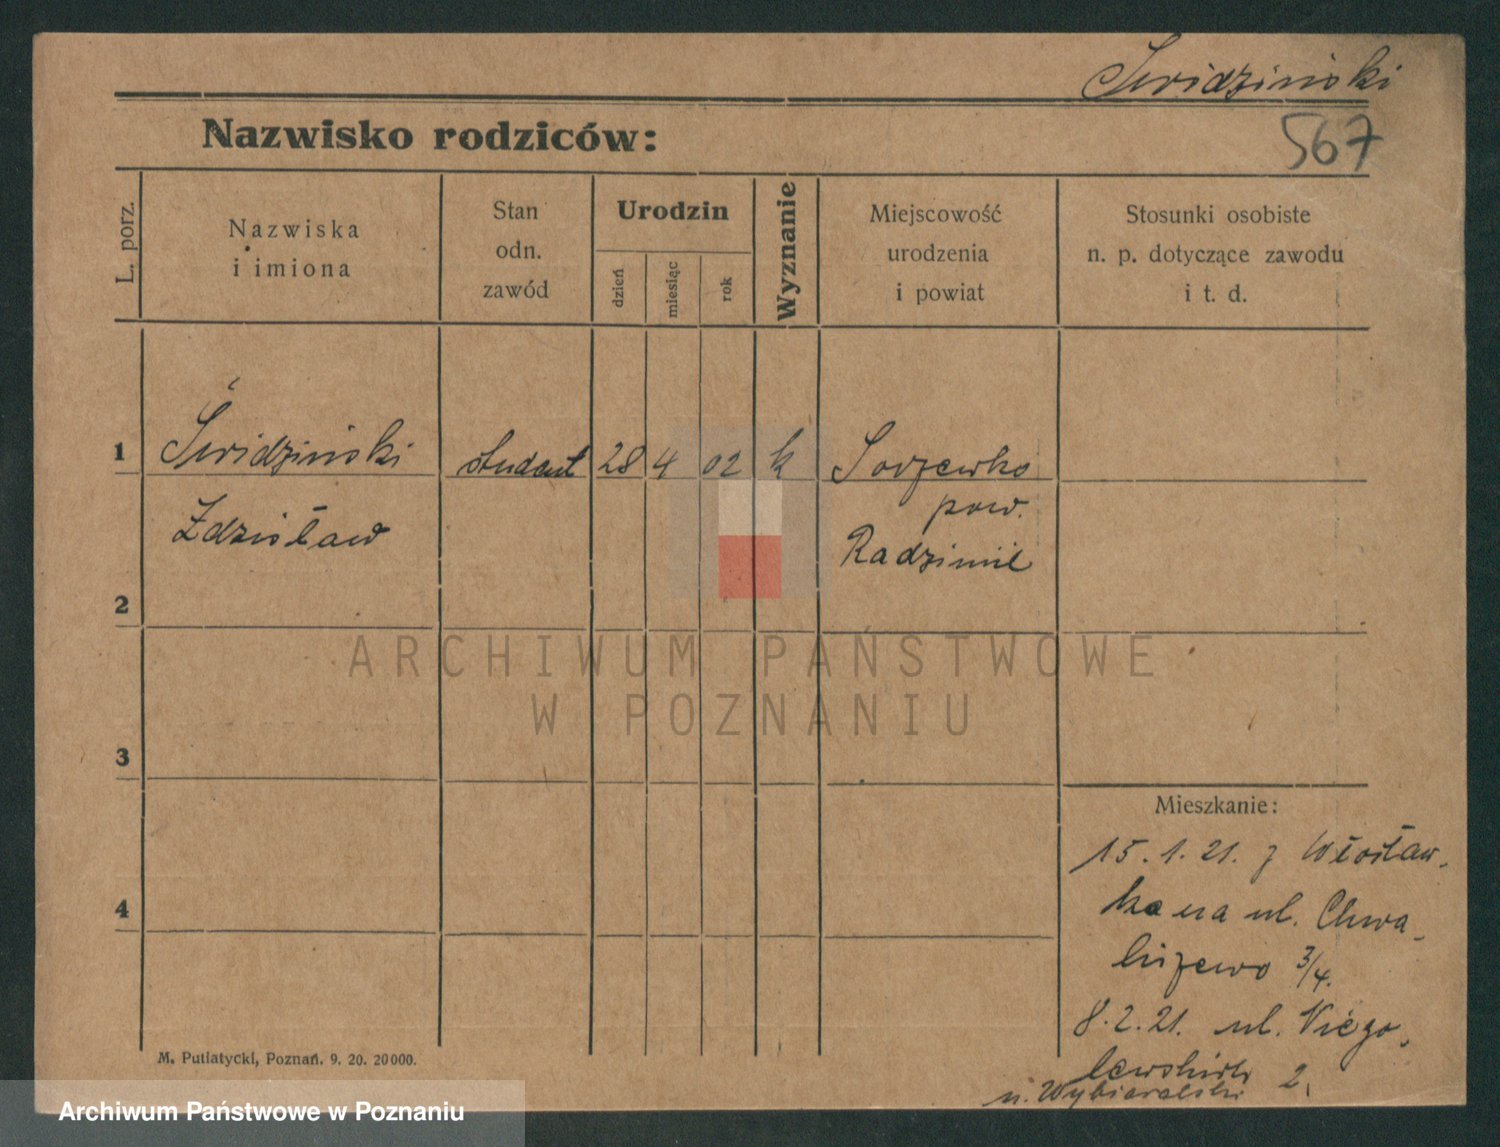 Świdziński
567
Nazwisko rodziców:
L. porz.
Nazwiska
i imiona
Stan
odn.
zawód
Urodzin
dzień
miesiąc
rok
Wyznanie
Miejscowość
urodzenia
i powiat
Stosunki osobiste
n. p. dotyczące zawodu
i t. d.
1
Świdziński student 28 4 02 k
Zdzisław
pow.
Radzimił
2
ARCHIWUM PAŃSTWOWE
W POZNANIU
3
4
Mieszkanie:
15.1.21. z Włosław-
ka na ul. Chwa-
liszewo 3/4.
8.2.21. ul. Niego-
lewskich 2.
M. Putiatycki, Poznań. 9. 20. 20000.
Archiwum Państwowe w Poznaniu